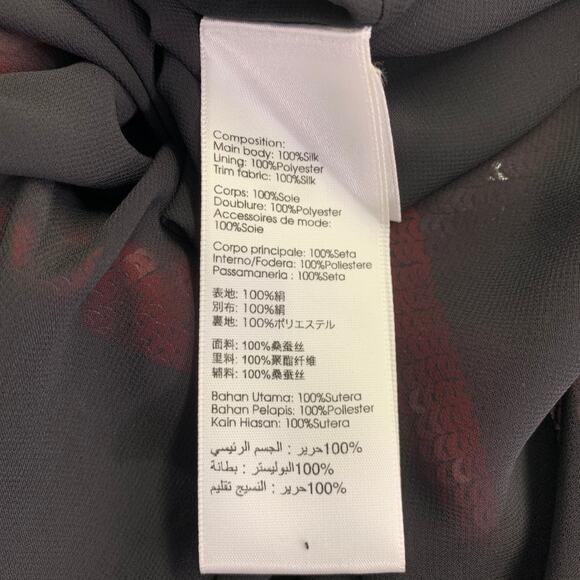 Composition:
Main body: 100%Silk
Lining: 100%Polyester
Trim fabric: 100%Silk
Corps: 100%Soie
Doublure: 100%Polyester
Accessoires de mode:
100%Soie
Corpo principale: 100%Seta
Interno/Fodera: 100%Poliestere
Passamaneria : 100%Seta
表地: 100%絹
別布: 100%絹
裏地: 100%ポリエステル
面料: 100%桑蚕丝
里料: 100%聚酯纤维
辅料: 100%桑蚕丝
Bahan Utama: 100%Sutera
Bahan Pelapis: 100%Poliester
Kain Hiasan: 100%Sutera
100%حرير : الجسم الرئيسي
100%البوليستر : بطانة
100%حرير : النسيج تقليم